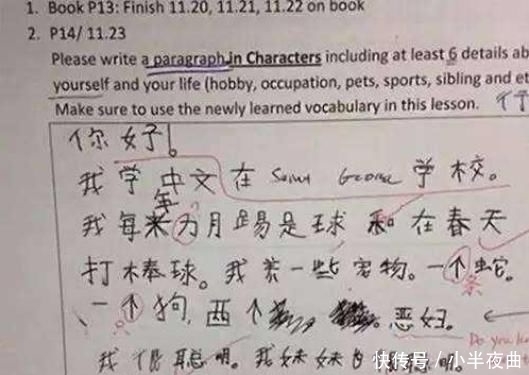 1. Book P13: Finish 11.20, 11.21, 11.22 on book
2. P14/ 11.23
Please write a paragraph in Characters including at least 6 details ab
yourself and your life (hobby, occupation, pets, sports, sibling and et
Make sure to use the newly learned vocabulary in this lesson.
你好！
我学中文在 George 学校。
年
我每来力月踢是球和在春天
打棒球。我养一些宠物。一个蛇。
条
一个狗，两个 恶妞。
Do you
我很聪明。我妹妹 聪明。
快传号/小半夜曲